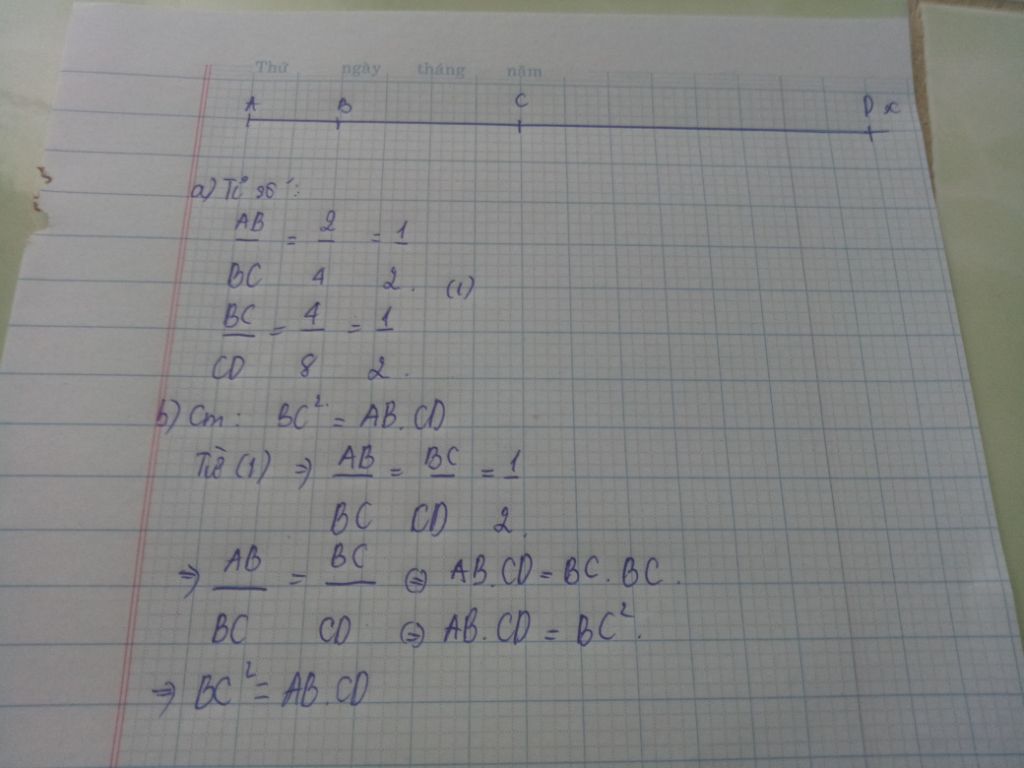 Thứ ngày tháng năm
A B C D x
a) Tỉ số:
AB/BC = 2/4 = 1/2. (1)
BC/CD = 4/8 = 1/2.
b) Cm: BC² = AB.CD
Từ (1) ⇒ AB/BC = BC/CD = 1/2.
⇒ AB/BC = BC/CD ⇔ AB.CD = BC.BC.
⇔ AB.CD = BC².
⇒ BC² = AB.CD